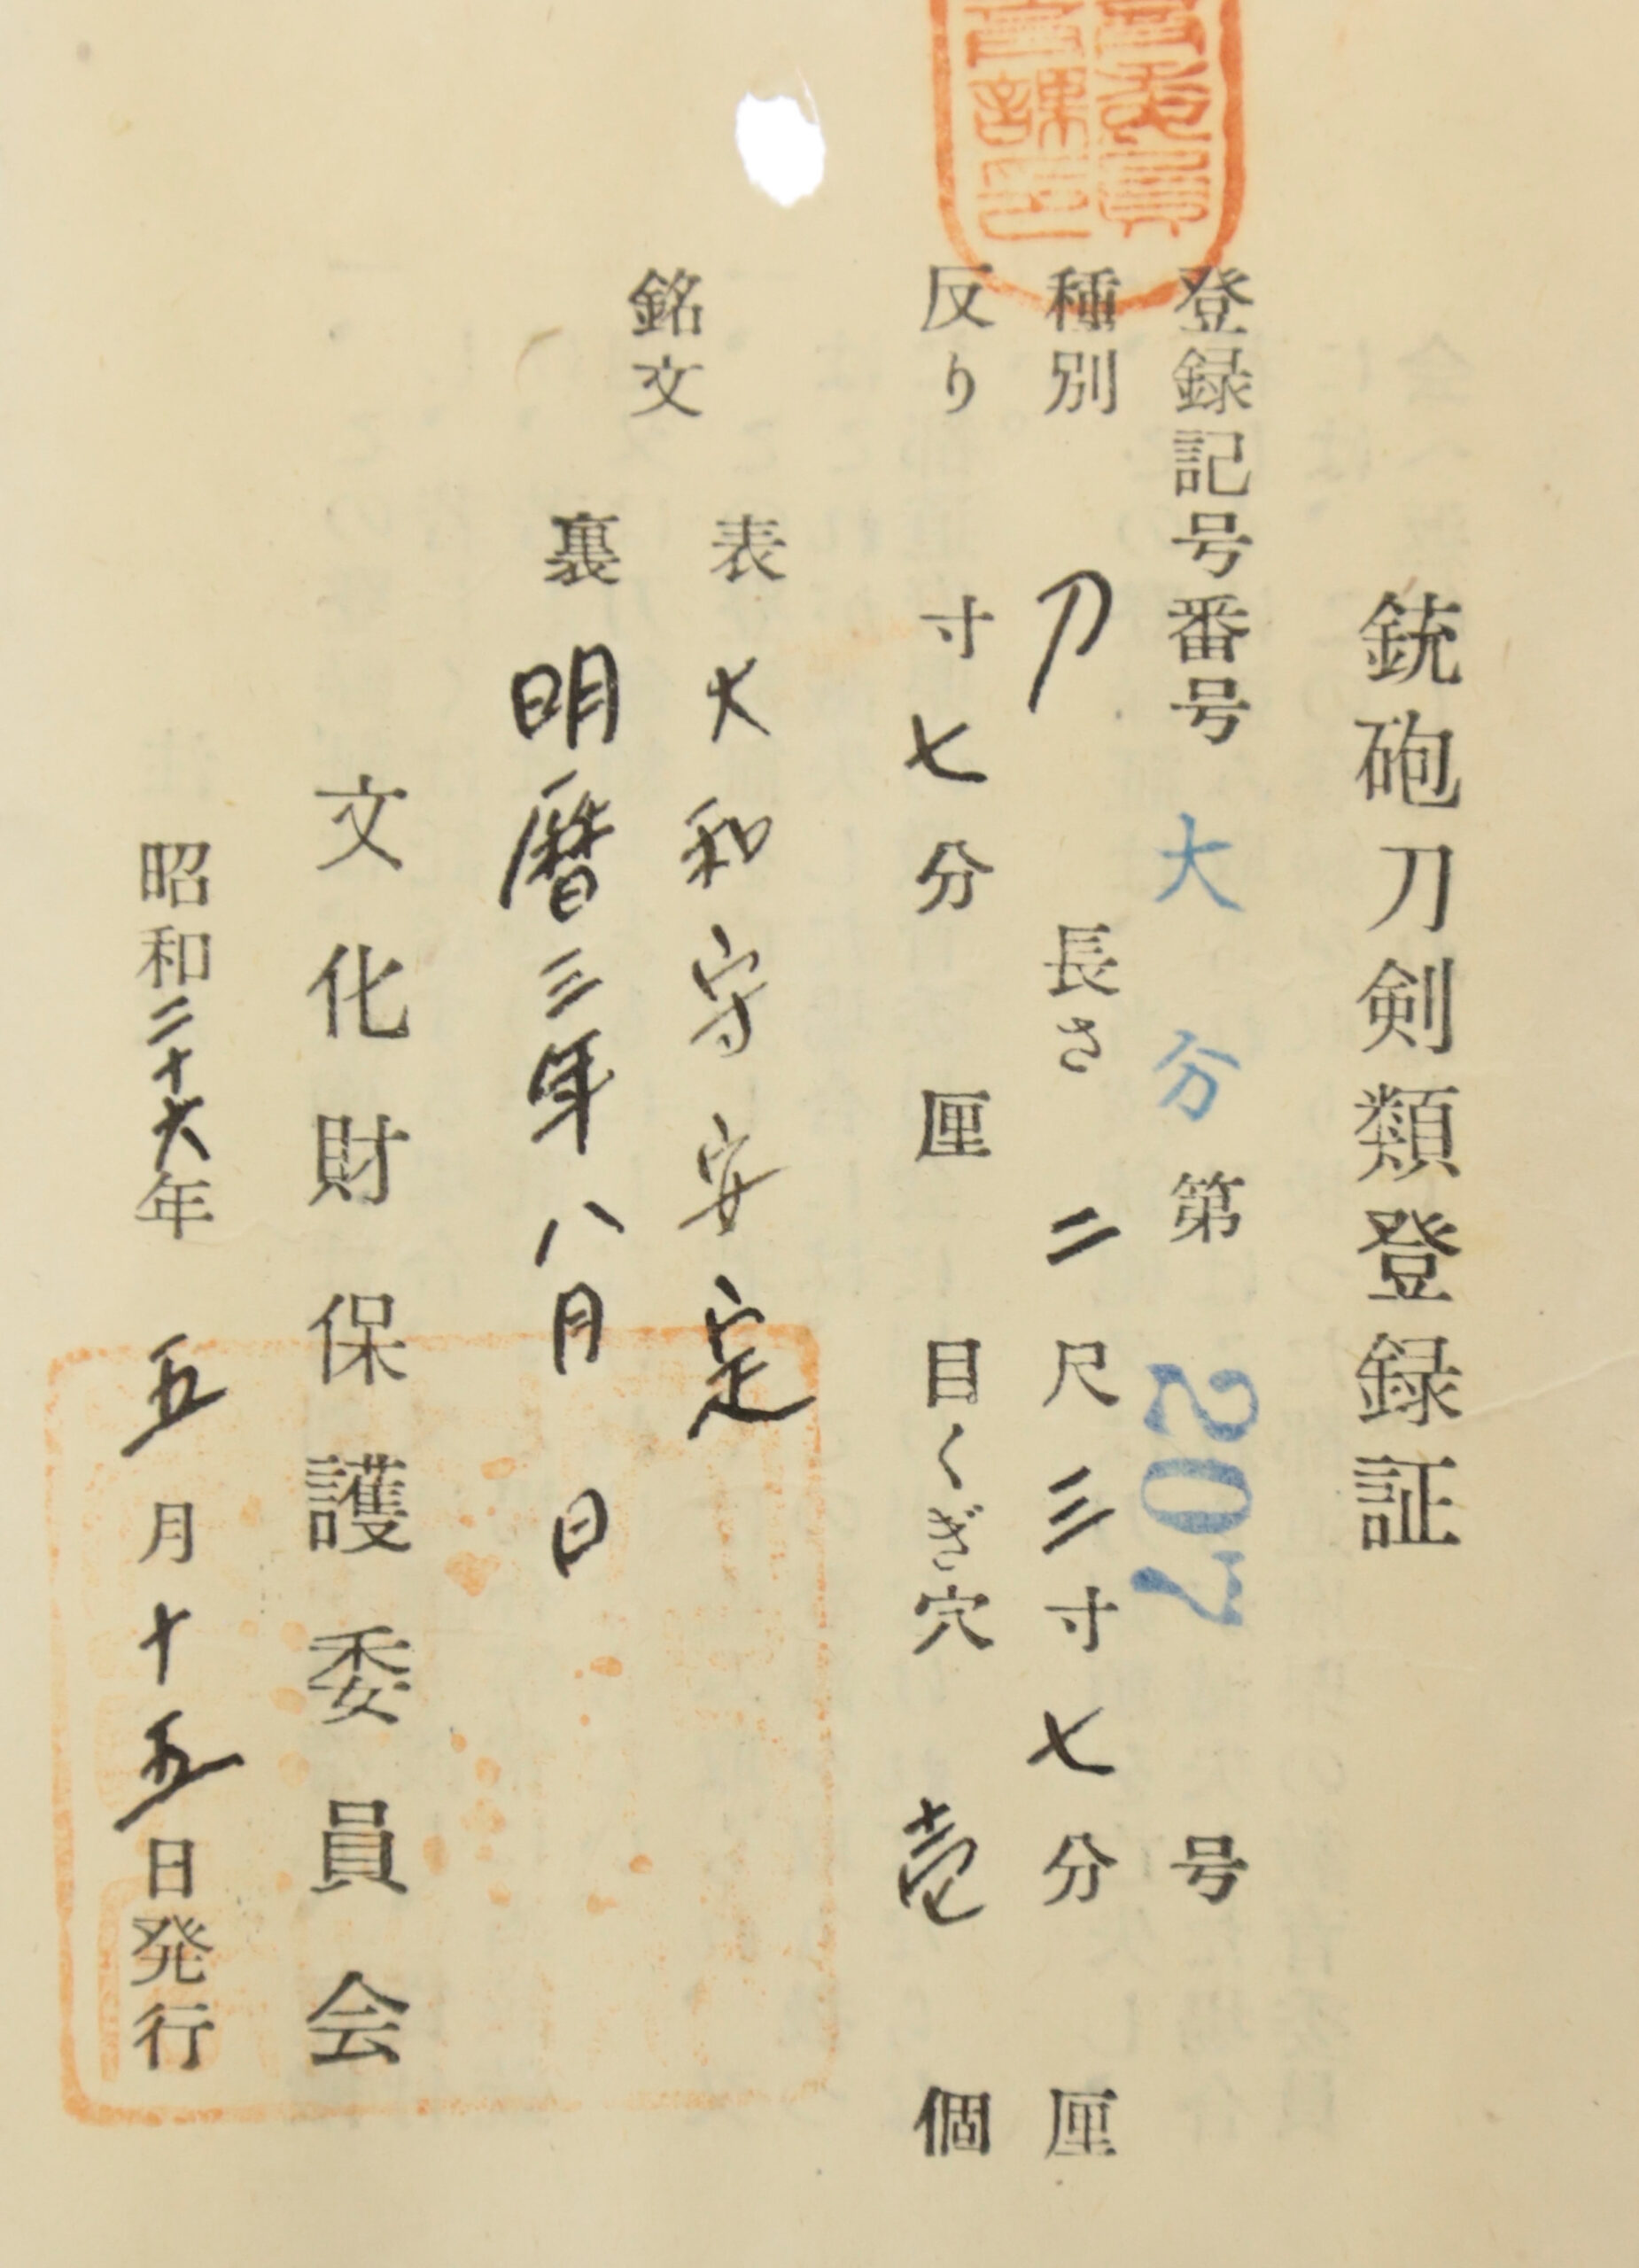 銃砲刀剣類登録証
登録記号番号 大分 第 207 号
種別 刀 長さ 二尺三寸七分 厘
反り 寸七分 厘 目くぎ穴 壱 個
銘文
表 大和守安定
裏 明暦三年八月 日
文化財保護委員会
昭和二十六年 五月十五日発行